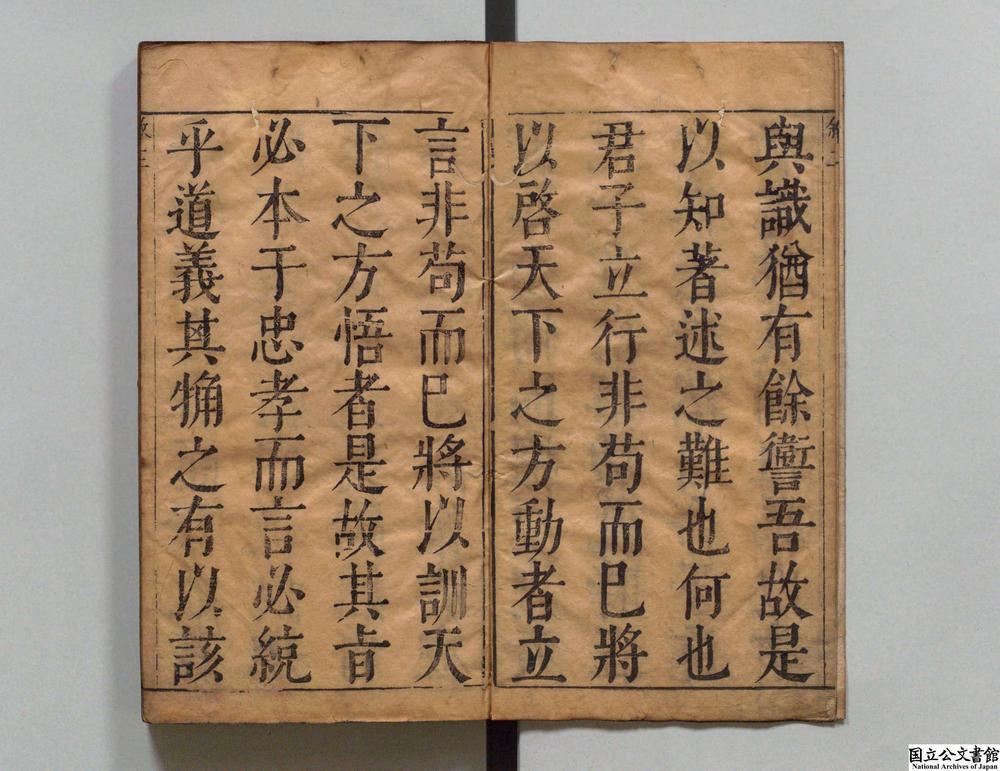 與識猶有餘讏吾故是
以知著述之難也何也
君子立行非苟而已將
以啓天下之方動者立
言非苟而已將以訓天
下之方悟者是故其㫖
必本于忠孝而言必統
乎道義其觕之有以該
国立公文書館
National Archives of Japan